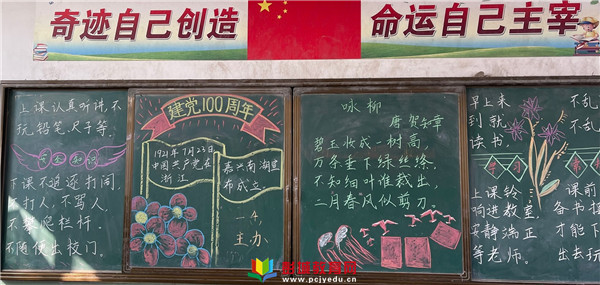 奇迹自己创造
命运自己主宰
上课认真听讲，不
玩铅笔、尺子等。
安全知识
下课不追逐打闹，
不打人，不骂人，
不攀爬栏杆，
不随便出校门。
建党100周年
1921年7月23日
中国共产党在
浙江
嘉兴南湖里
布成立
一.4.
主办
咏柳
唐 贺知章
碧玉妆成一树高，
万条垂下绿丝绦。
不知细叶谁裁出，
二月春风似剪刀。
早上来
到就
读书。
学习
上课铃
响进教室
安静端正
等老师。
不乱
不乱
课前
备书
才能下
出去玩
www.pcjyedu.cn